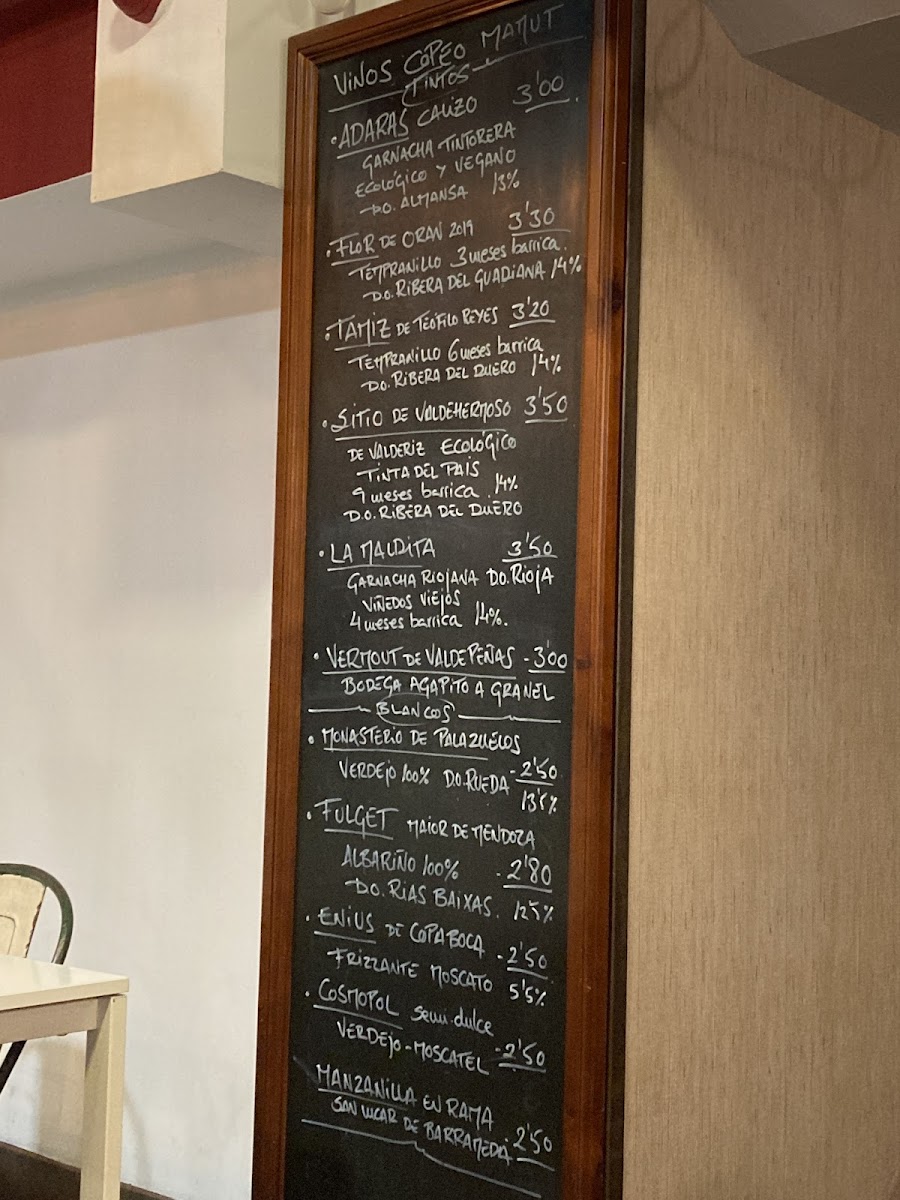 VINOS COPEO MAMUT
TINTOS
• ADARAS CALIZO 3'00
GARNACHA TINTORERA
ECOLÓGICO Y VEGANO
D.O. ALMANSA 13%
• FLOR DE ORAN 2019 3'30
TEMPRANILLO 3 meses barrica.
D.O. RIBERA DEL GUADIANA 14%
• TAMIZ DE TEÓFILO REYES 3'20
TEMPRANILLO 6 meses barrica
D.O. RIBERA DEL DUERO 14%
• SITIO DE VALDEHERMOSO 3'50
DE VALDERIZ ECOLÓGICO
TINTA DEL PAIS
9 meses barrica. 14%
D.O. RIBERA DEL DUERO
• LA MALDITA 3'50
GARNACHA RIOJANA D.O. RIOJA
VIÑEDOS VIEJOS
4 meses barrica 14%.
• VERMOUT DE VALDEPEÑAS - 3'00
BODEGA AGAPITO A GRANEL
BLANCOS
• MONASTERIO DE PALAZUELOS
VERDEJO 100% D.O. RUEDA - 2'50
13'5%
• FULGET MAIOR DE MENDOZA
ALBARIÑO 100% - 2'80
D.O. RIAS BAIXAS. 12'5%
• ENIUS DE COPABOCA - 2'50
FRIZZANTE MOSCATO 5'5%
• COSMOPOL semi-dulce
VERDEJO - MOSCATEL - 2'50
MANZANILLA EN RAMA
SAN LUCAR DE BARRAMEDA - 2'50